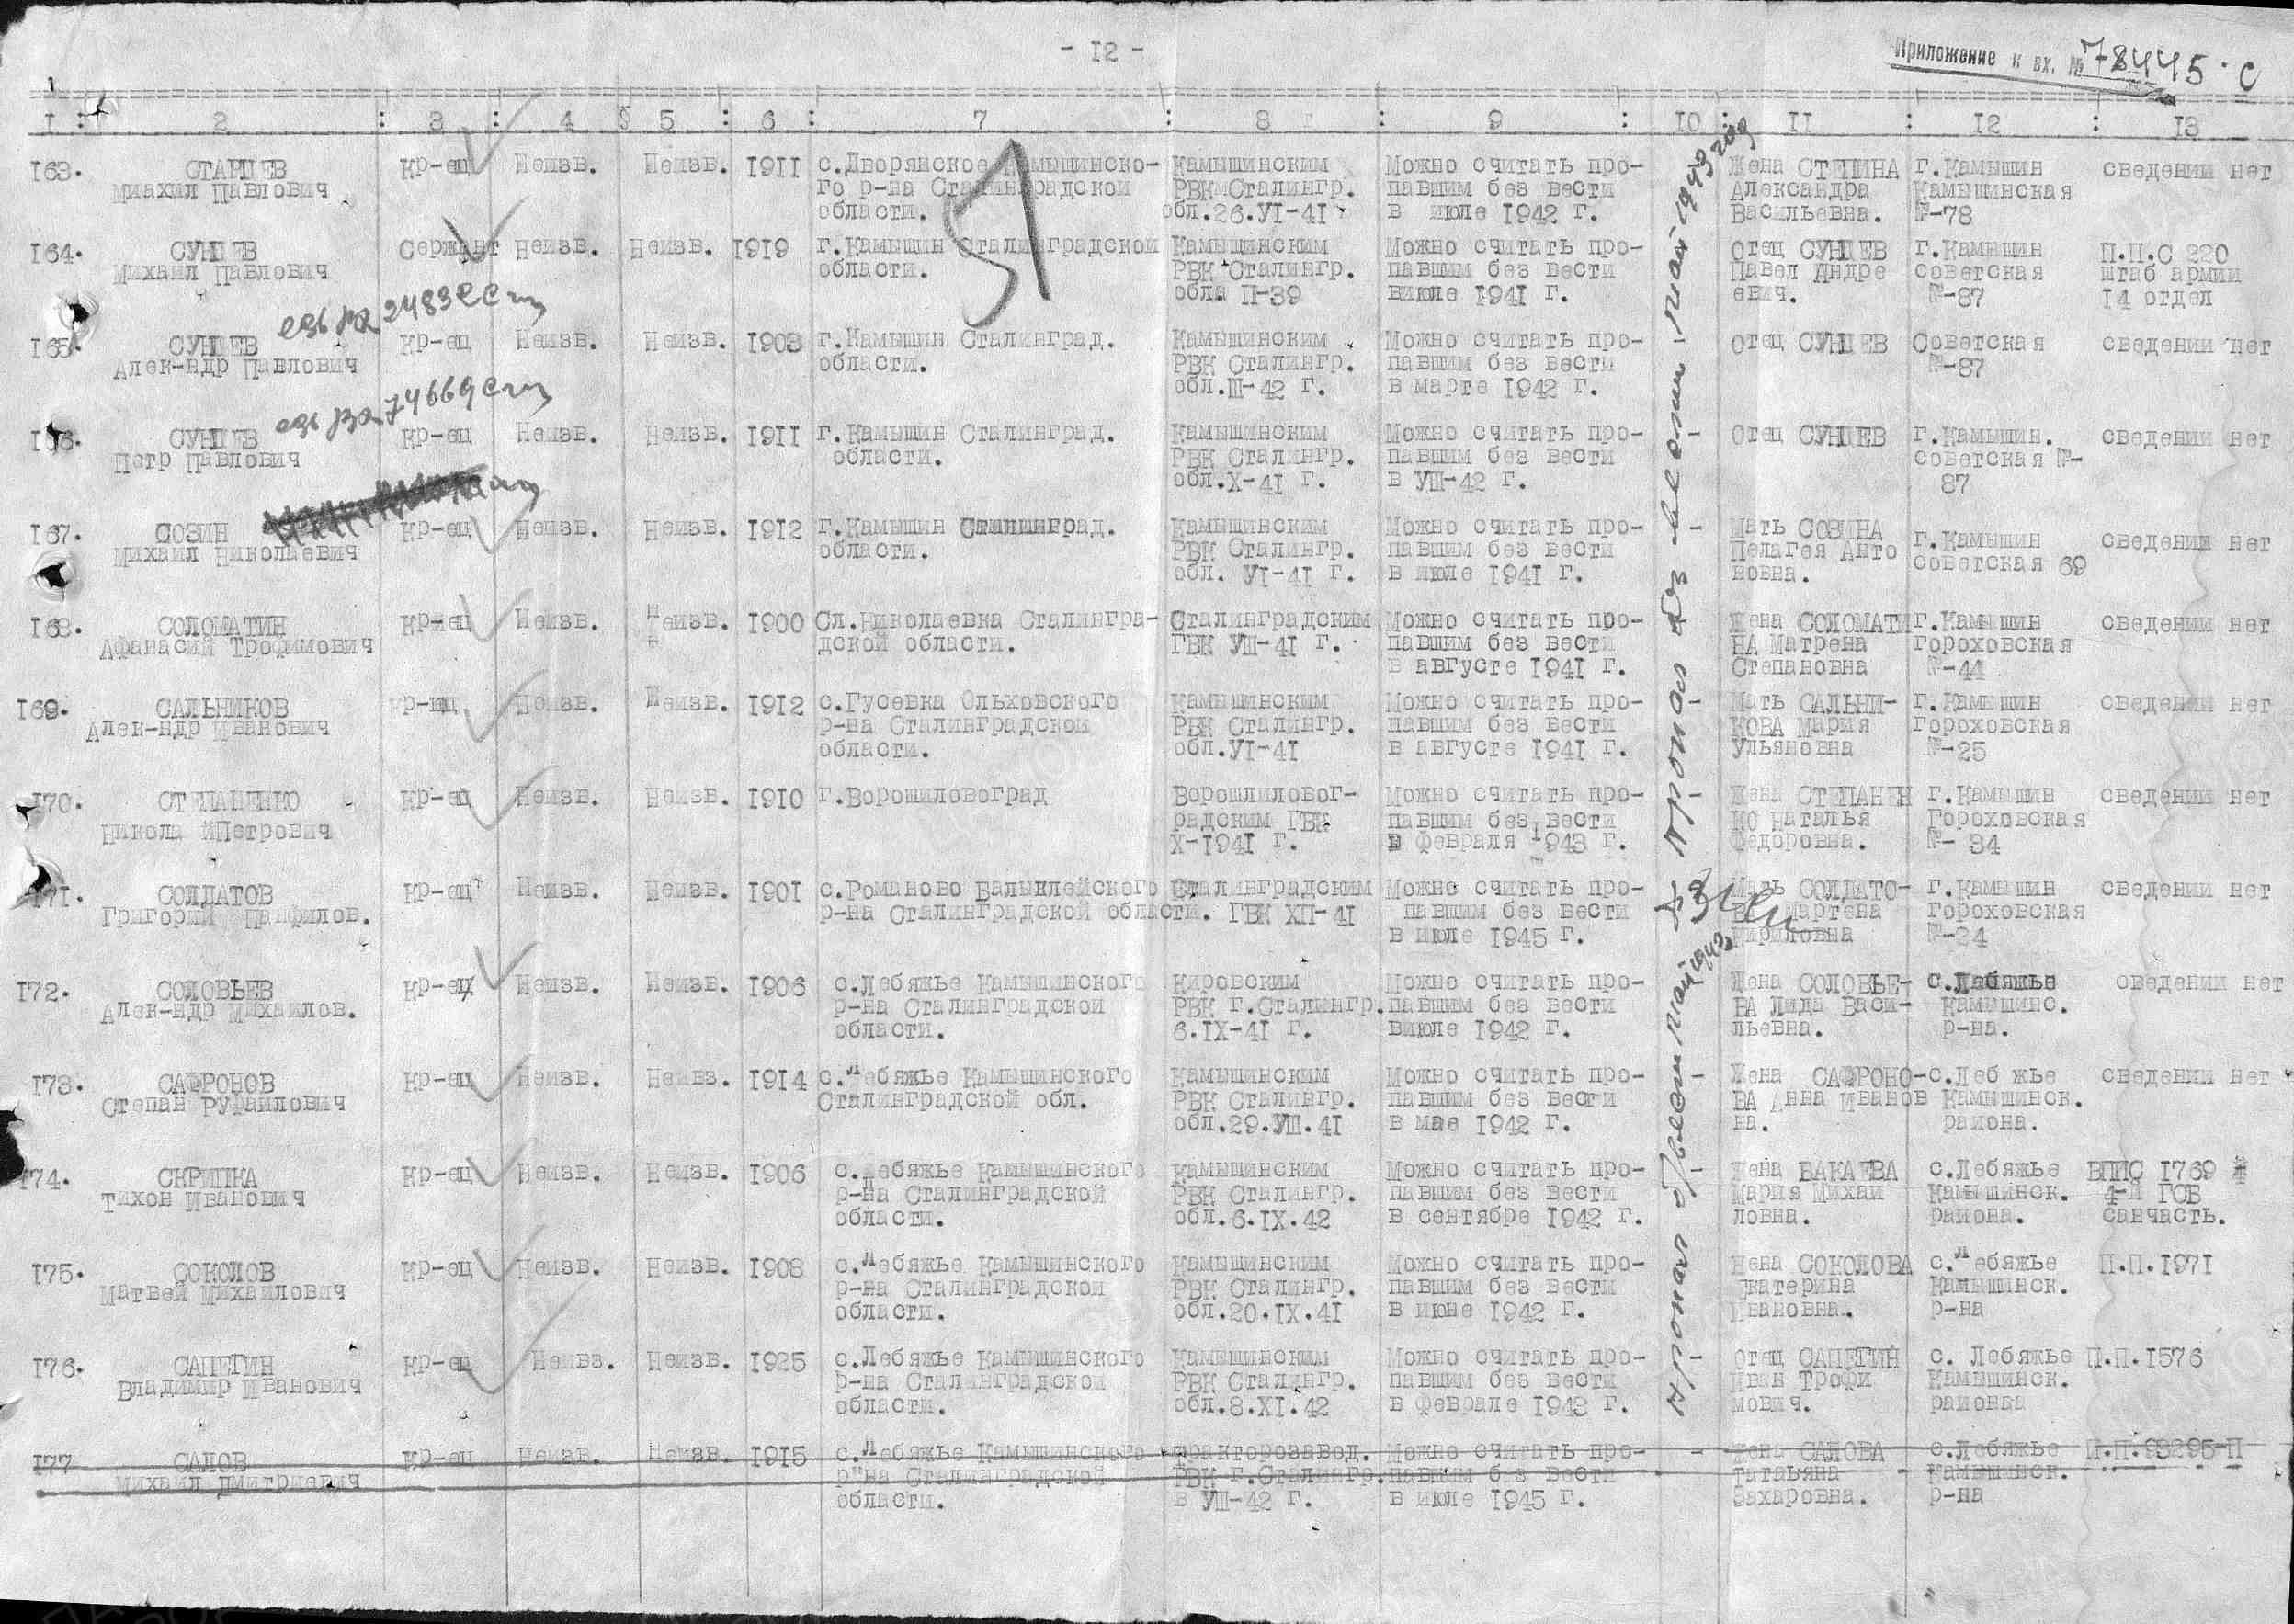 - 12 -
Приложение к вх. № 78445·с
1 : 2 : 3 : 4 : 5 : 6 : 7 : 8 : 9 : 10 : 11 : 12 : 13
163. СТАРЦЕВ Кр-ец Неизв. Неизв. 1911 с.Дворянское Камышинско- Камышинским Можно считать про- Жена СТЕПИНА г.Камышин сведении нет
Миахил Павлович го р-на Сталинградской РВКмСталингр. павшим без вести Александра Камышинская
области. обл.26.УІ-41 в июле 1942 г. Васильевна. №-78
164. СУНЦЕВ Сержант Неизв. Неизв. 1919 г.Камышин Сталинградской Камышинским Можно считать про- Отец СУНЦЕВ г.Камышин П.П.С 220
Михаил Павлович области. РВК Сталингр. павшим без вести Павел Андре советская штаб армии
обла П-39 виюле 1941 г. евич. №-87 14 отдел
165. СУНЦЕВ Кр-ец Неизв. Неизв. 1903 г.Камышин Сталинград. Камышинским Можно считать про- Отец СУНЦЕВ Советская сведении нет
Алек-ндр Павлович области. РВК Сталингр. павшим без вести №-87
обл.Ш-42 г. в марте 1942 г.
166. СУНЦЕВ Кр-ец Неизв. Неизв. 1911 г.Камышин Сталинград. Камышинским Можно считать про- - Отец СУНЦЕВ г.Камышин. сведении нет
Петр Павлович области. РВК Сталингр. павшим без вести советская №-
обл.Х-41 г. в УШ-42 г. 87
167. СОЗИН Кр-ец Неизв. Неизв. 1912 г.Камышин Сталинград. Камышинским Можно считать про- - Мать СОЗИНА г.Камышин сведении нет
Михаил Николаевич области. РВК Сталингр. павшим без вести Пелагея Анто советская 69
обл. УІ-41 г. в июле 1941 г. новна.
168. СОЛОМАТИН Кр-ец Неизв. Неизв. 1900 Сл.Николаевка Сталингра- Сталинградским Можно считать про- - Жена СОЛОМАТИ г.Камышин сведении нет
Афанасий Трофимович дской области. ГВК УШ-41 г. павшим без вести НА Матрена Гороховская
в августе 1941 г. Степановна №-44
169. САЛЬНИКОВ Кр-ец Неизв. Неизв. 1912 с.Гусевка Ольховского Камышинским Можно считать про- - Мать САЛЬНИ- г.Камышин сведении нет
Алек-ндр Иванович р-на Сталинградской РВК Сталингр. павшим без вести КОВА Мария Гороховская
области. обл.УІ-41 в августе 1941 г. Ульяновна №-25
170. СТЕПАНЕНКО Кр-ец Неизв. Неизв. 1910 г.Ворошиловоград Ворошлиловог- Можно считать про- - Жена СТЕПАНЕН г.Камышин сведении нет
Никола йПетрович радским ГВК павшим без вести КО Наталья Гороховская
Х-1941 г. в февраля 1943 г. Федоровна. №- 34
171. СОЛДАТОВ Кр-ец Неизв. Неизв. 1901 с.Романово Балыклейского Сталинградским Можно считать про- Мать СОЛДАТО- г.Камышин сведении нет
Григорий Панфилов. р-на Сталинградской области. ГВК ХП-41 павшим без вести Мартена Гороховская
в июле 1945 г. Кириловна №-24
172. СОЛОВЬЕВ Кр-ец Неизв. Неизв. 1906 с.Лебяжье Камышинского Кировским Можно считать про- Жена СОЛОВЬЕ- с.Лебяжье сведении нет
Алек-ндр Михаилов. р-на Сталинградской РВК г.Сталингр. павшим без вести ВА Лида Васи- Камышинс.
области. 6.ІХ-41 г. виюле 1942 г. льевна. р-на.
173. САФРОНОВ Кр-ец Неизв. Неивз. 1914 с.Лебяжье Камышинского Камышинским Можно считать про- - Жена САФРОНО- с.Леб жье сведении нет
Степан Руфаилович Сталинградской обл. РВК Сталингр. павшим без вести ВА Анна Иванов Камышинск.
обл.29.УШ.41 в мае 1942 г. на. района.
174. СКРИПКА Кр-ец Неизв. Неизв. 1906 с.Лебяжье Камышинского Камышинским Можно считать про- - Жена БАКАЕВА с.Лебяжье ВПИС 1769
Тихон Иванович р-на Сталинградской РВК Сталингр. павшим без вести Мария Михаи Камышинск. 4-й ГОБ
области. обл.6.ІХ.42 в сентябре 1942 г. ловна. района. санчасть.
175. СОКОЛОВ Кр-ец Неизв. Неизв. 1908 с.Лебяжье Камышинского Камышинским Можно считать про- Жена СОКОЛОВА с.Лебяжье П.П.1971
Матвей Михаилович р-на Сталинградской РВК Сталингр. павшим без вести Екатерина Камышинск.
области. обл.20.ІХ.41 в июне 1942 г. Ивановна. р-на
176. САПЕГИН Кр-ец Неивз. Неизв. 1925 с.Лебяжье Камышинского Камышинским Можно считать про- - Отец САПЕГИН с. Лебяжье П.П.1576
Владимир Иванович р-на Сталинградской РВК Сталингр. павшим без вести Иван Трофи Камышинск.
области. обл.8.ХІ.42 в феврале 1943 г. мович. района
177 САЛОВ Кр-ец Неизв. Неизв. 1915 с.Лебяжье Камышинского Тракторозавод. Можно считать про- - Жена САЛОВА с.Лебяжье П.П.93295-П
Михаил Дмитриевич р-на Сталинградской РВК г.Сталингр. павшим без вести Татьяна Камышинск.
области. в УШ-42 г. в июле 1945 г. Захаровна. р-на
Пропал без вести май 1943